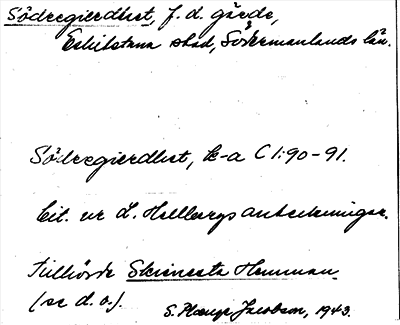 Södregierdhet, f. d. gärde,
Eskilstuna stad, Södermanlands län.
Södregierdhet, k-a C 1:90-91.
Cit. ur L. Hellbergs anteckningar.
Tillhörde Skiresta Hemman
(se d. o.).
S. Plænge Jacobson, 1943.